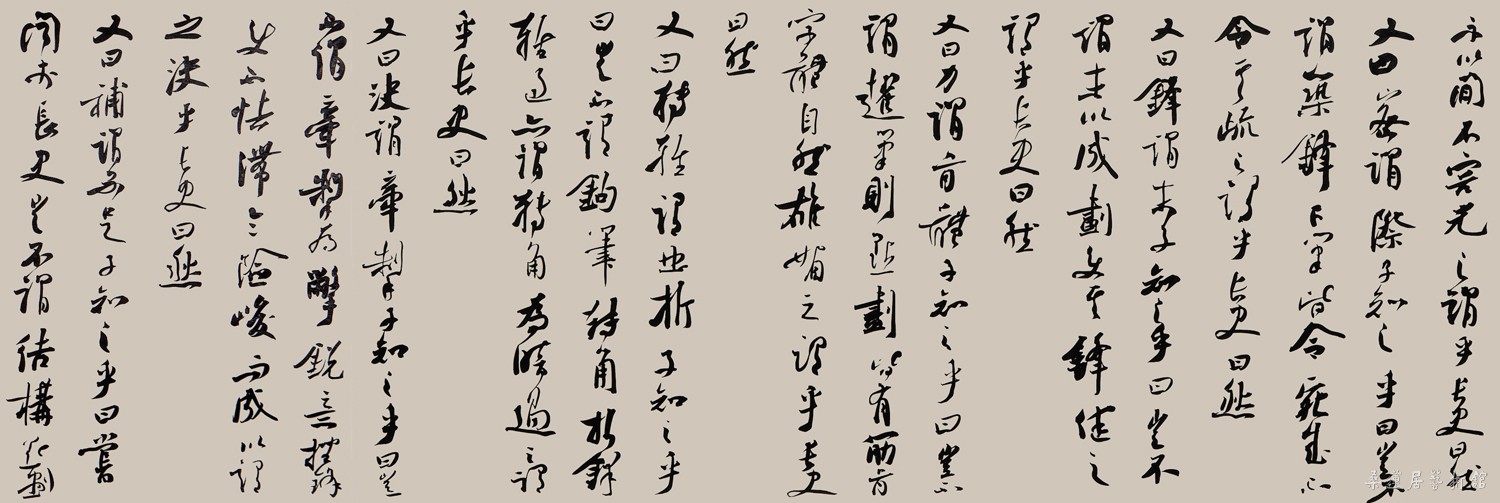 示以間不容光之謂乎長史曰然
又曰密謂際子知之乎曰豈不
謂築鋒下筆皆令宛成不
令其疏之謂乎長史曰然
又曰鋒謂末子知之乎曰豈不
謂末以成劃使其鋒健之
謂乎長史曰然
又曰力謂骨體子知之乎曰豈不
謂趯筆則點劃皆有筋骨
字體自然雄媚之謂乎長史
曰然
又曰轉輕謂曲折子知之乎
曰豈不謂鉤筆轉角折鋒
輕過亦謂轉角為暗過之謂
乎長史曰然
又曰決謂牽掣子知之乎曰豈
不謂牽掣為撆銳意挫鋒
使不怯滯令險峻而成以謂
之決乎長史曰然
又曰補謂不足子知之乎曰嘗
聞於長史豈不謂結構點劃
桑蓮居藝術館